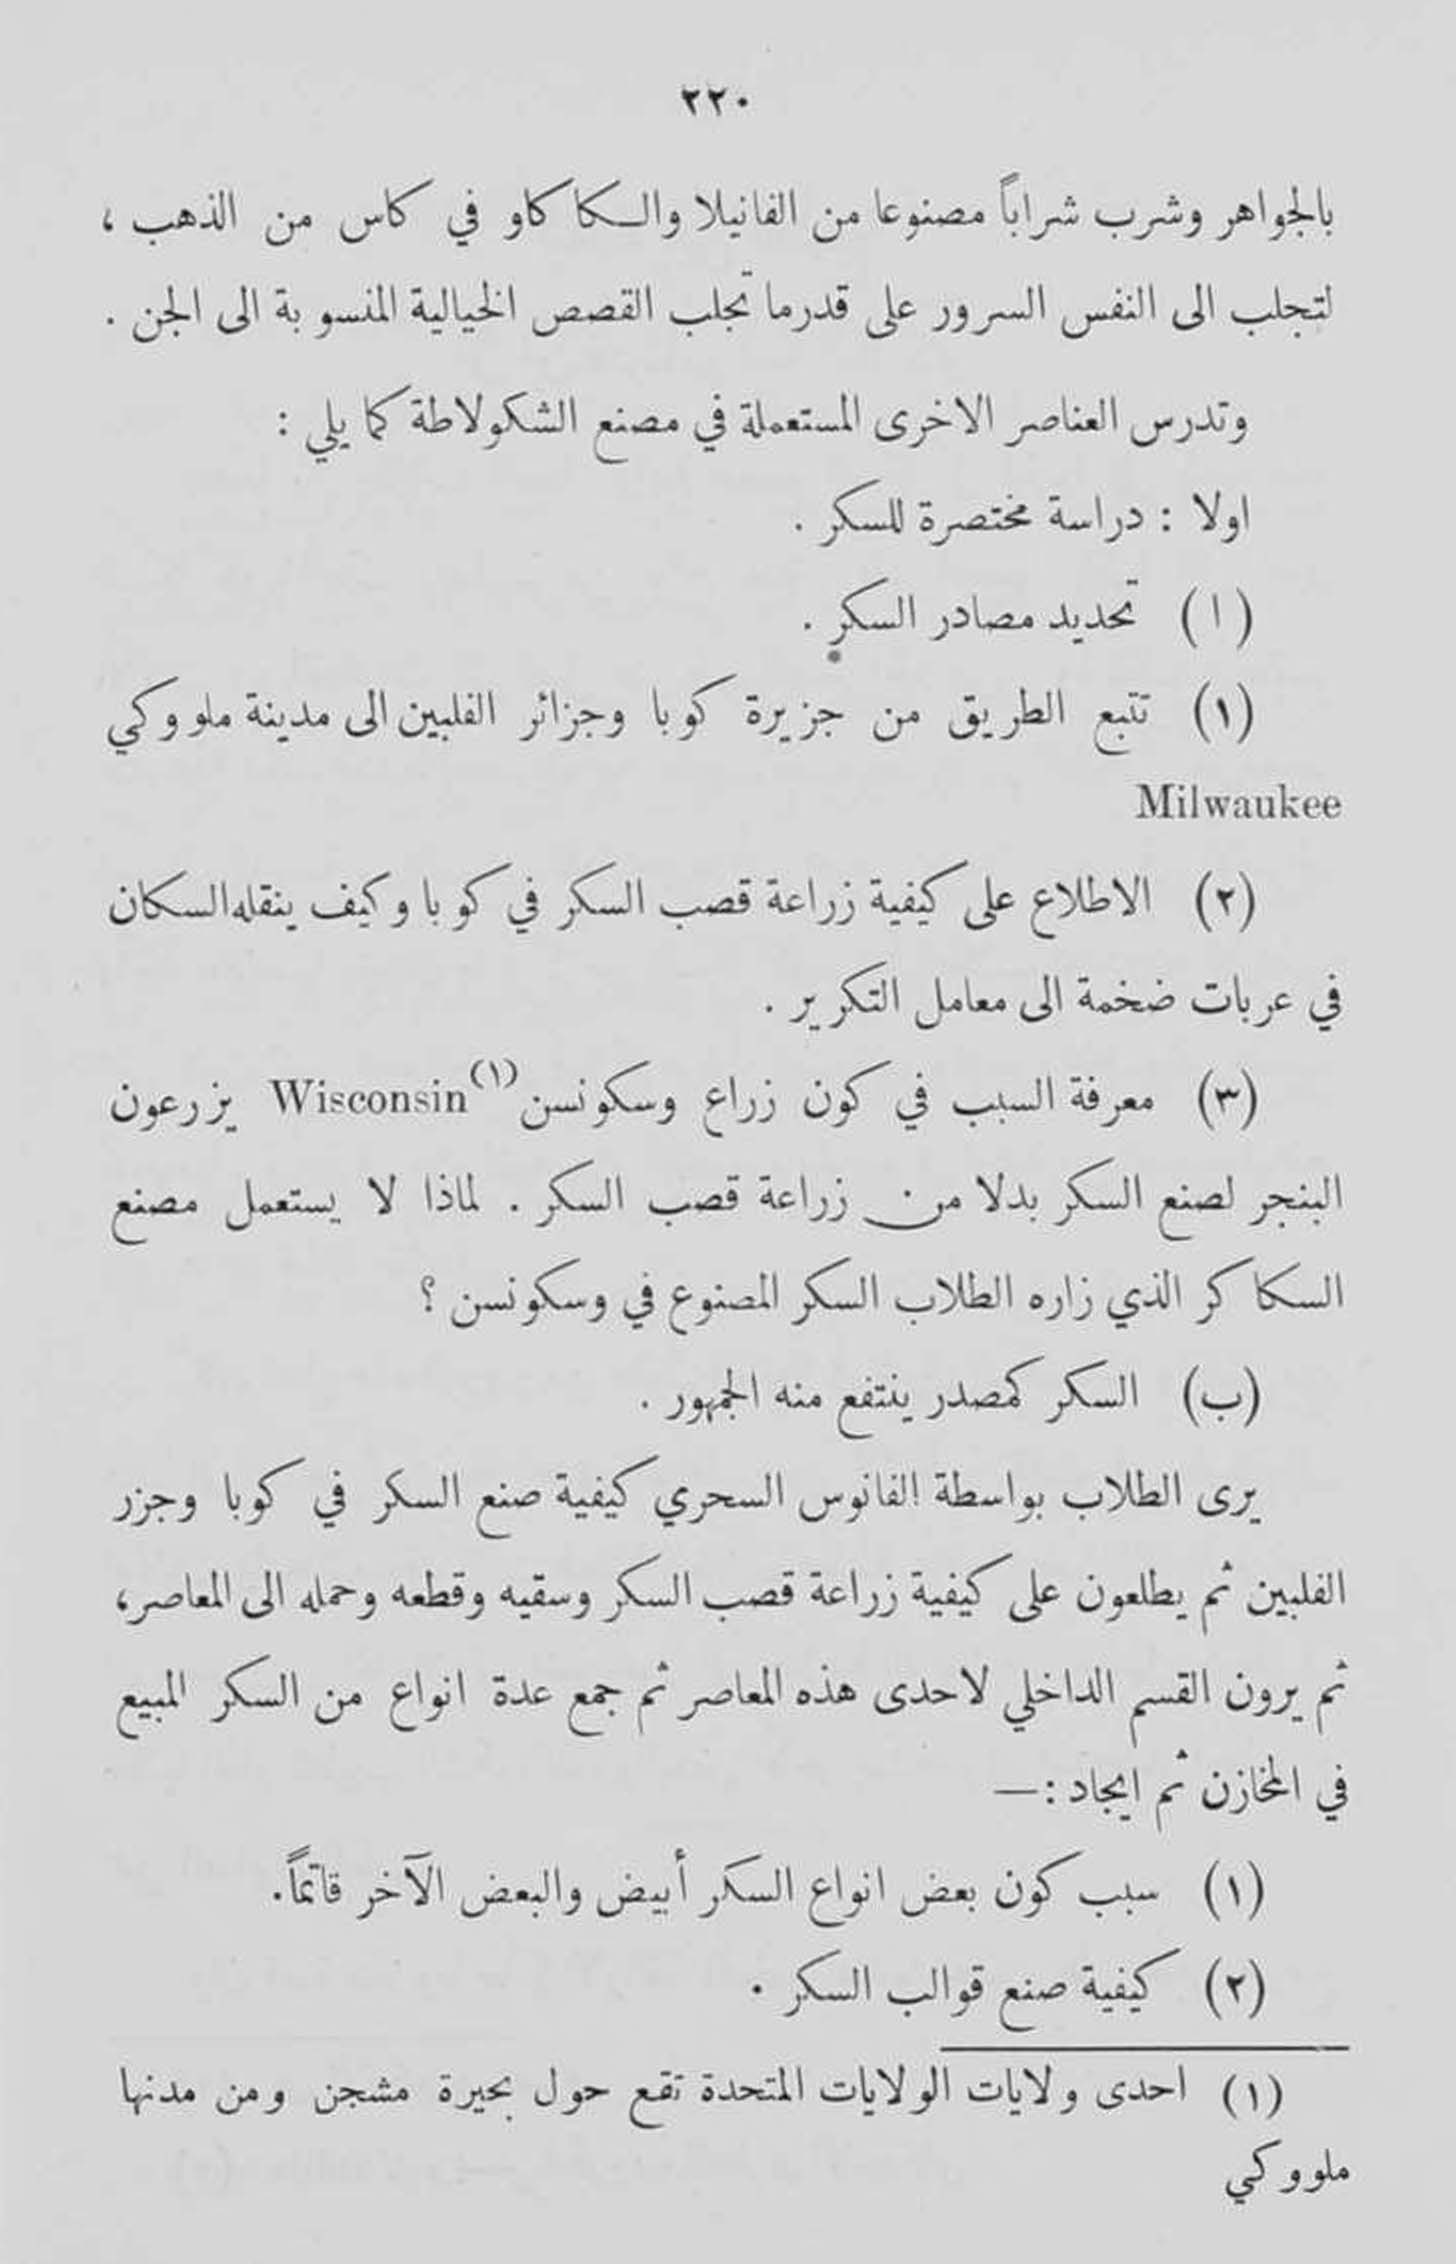 ٢٢٠
بالجواهر وشرب شراباً مصنوعا من الفانيلا والكاكاو في كاس من الذهب ،
لتجلب الى النفس السرور على قدرما تجلب القصص الخيالية المنسوبة الى الجن .
وتدرس العناصر الاخرى المستعملة في مصنع الشكولاطة كما يلي :
اولا : دراسة مختصرة للسكر .
(ا) تحديد مصادر السكر .
(١) تتبع الطريق من جزيرة كوبا وجزائر الفلبين الى مدينة ملووكي
Milwaukee
(٢) الاطلاع على كيفية زراعة قصب السكر في كوبا وكيف ينقله السكان
في عربات ضخمة الى معامل التكرير .
(٣) معرفة السبب في كون زراع وسكونسن (١) Wisconsin يزرعون
البنجر لصنع السكر بدلا من زراعة قصب السكر . لماذا لا يستعمل مصنع
السكاكر الذي زاره الطلاب السكر المصنوع في وسكونسن ؟
(ب) السكر كمصدر ينتفع منه الجمهور .
يرى الطلاب بواسطة الفانوس السحري كيفية صنع السكر في كوبا وجزر
الفلبين ثم يطلعون على كيفية زراعة قصب السكر وسقيه وقطعه وحمله الى المعاصر،
ثم يرون القسم الداخلي لاحدى هذه المعاصر ثم جمع عدة انواع من السكر المبيع
في المخازن ثم ايجاد :—
(١) سبب كون بعض انواع السكر أبيض والبعض الآخر قاتماً.
(٢) كيفية صنع قوالب السكر .
(١) احدى ولايات الولايات المتحدة تقع حول بحيرة مشجن ومن مدنها
ملووكي